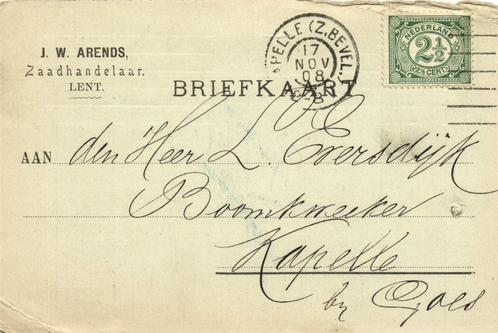 J. W. ARENDS,
Zaadhandelaar.
LENT.
KAPELLE (Z.BEVEL.)
17
NOV
08
NEDERLAND
2½
CENT
BRIEFKAART
AAN den Heer L. Eversdijk
Boomkweeker
Kapelle
by Goes